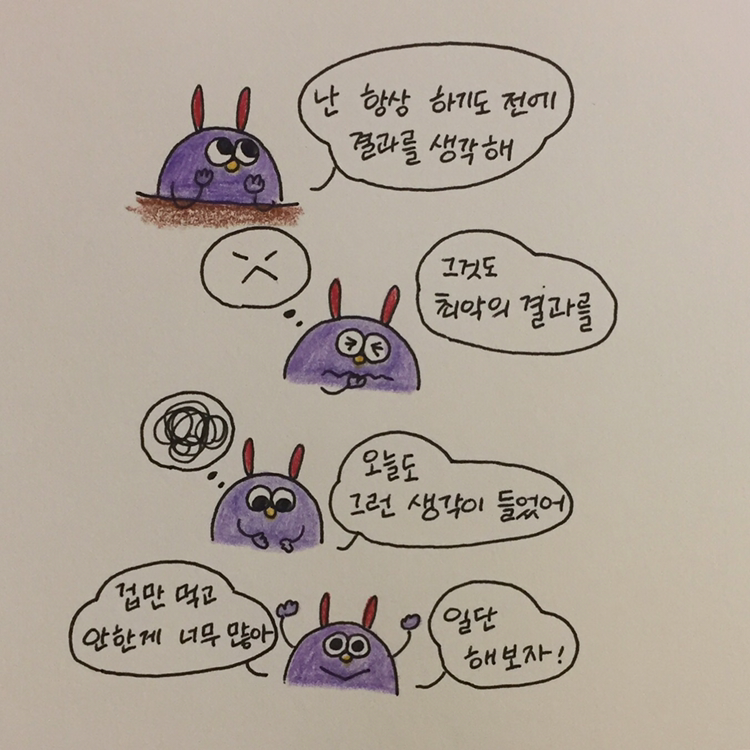 난 항상 하기도 전에
결과를 생각해
그것도
최악의 결과를
오늘도
그런 생각이 들었어
겁만 먹고
안한게 너무 많아
일단
해보자!